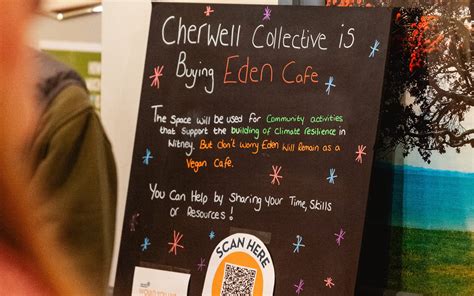 Cherwell Collective is
Buying Eden Cafe
The Space will be used for Community activities
that Support the building of Climate resilience in
Witney. But don't worry Eden Will Remain as a
Vegan Cafe.
You Can Help by Sharing Your Time, Skills
or Resources!
SCAN HERE